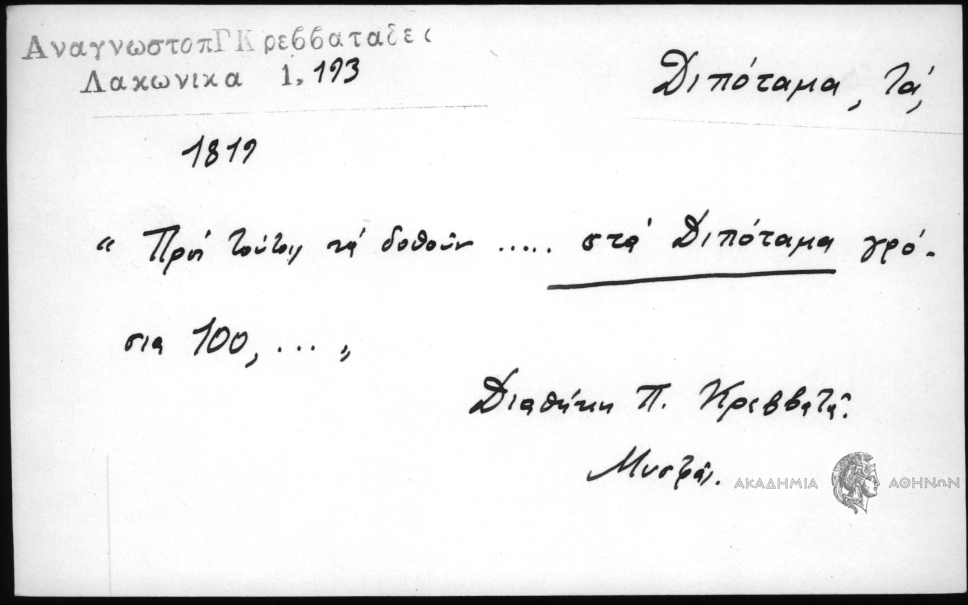 Αναγνωστοπ Γ Κρεββαταδες
Λακωνικα 1, 193
Διπόταμα, τά,
1819
“ Πρός τούτοις νά δοθοῦν ..... στά Διπόταμα γρό-
σια 100, ... „
Διαθήκη Π. Κρεββατᾶ.
Μυστρᾶς.
ΑΚΑΔΗΜΙΑ ΑΘΗΝΩΝ